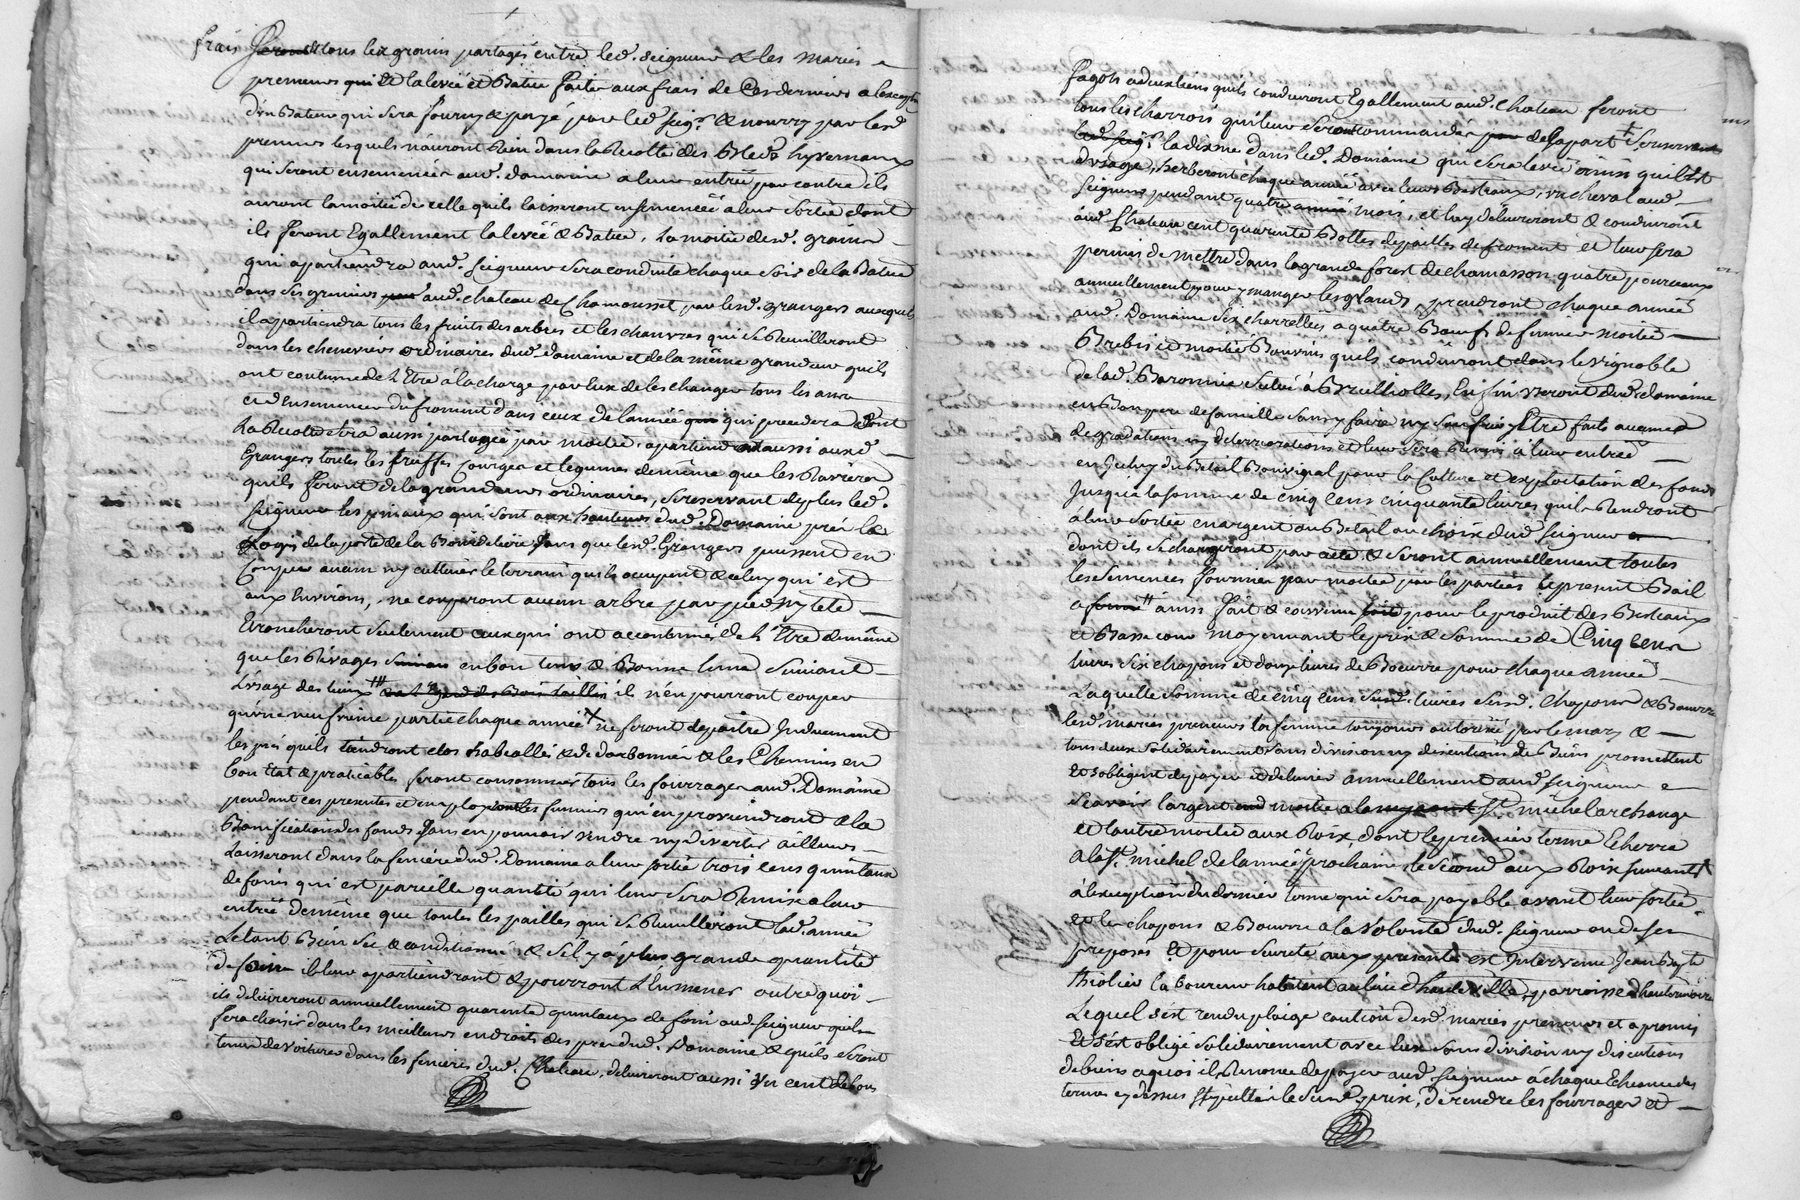 frais seront tous les grains partagés entre led. seigneur & les mariés
preneurs qui la levée et Batue faite aux frais de Ces derniers a lexception
d'un Bateur qui sera fourny & payé par led. seigr. & nourry par lesd
preneurs lesquels n'auront Rien dans la Recolte des Bleds hyvernaux
qui seront ensemencés aud. domaine a leur entrée par contre ils
auront la moitié de celle quils laisseront ensemencée a leur sortie dont
ils feront Egallement la levée & Batue, la moitié desd. grains
qui apartiendra aud. seigneur sera conduite chaque soir de la Batue
dans ses greniers aud. chateau de Chamousset par lesd. grangers auxquels
il apartiendra tous les fruits des arbres et les chanvres qui se Recuilleront
dans les cheneviers ordinaires dud. domaine et de la même grandeur quils
ont coutume de L'Etre à la charge par Eux de les changer tous les ans
et d'Ensemencer du froment dans ceux de l'année qui precedera dont
La Recolte sera aussi partagée par moitié, apartiendra aussi auxd
Grangers toutes les truffes Courges et legumes de même que les Ravières
quils feront de la grandeur ordinaires, se reservant de plus led.
seigneur les jonaux qui sont aux hauteurs dud. Domaine près le
Logis de la porte de la sans que lesd. Grangers puissent en
Couper aucun ny cultiver le terrain quils occupent & celuy qui est
aux Environs, ne couperont aucun arbre par pied ny tete
Ebrancheront seulement ceux qui ont accoutumés de L'Etre de même
que les Rivages en bon tems & Bonne lune suivant
L'usage des lieux il n'en pourront couper
qu'une neufvième partie chaque année ne feront depaitre Induement
les prés quils tiendront clos & les Chemins en
bon Etat & praticables feront consommer tous les fourrages aud. Domaine
pendant ces presentes et employ toutes les fumiers qui en proviendront à la
Bonification des fonds sans en pouvoir vendre ny divertir ailleurs
Laisseront dans la fenière dud. Domaine a leur sortie trois cens quintaux
de foins qui est pareille quantité qui leur sera Remise a leur
entrée de même que toutes les pailles qui se Recuilleront lad. année
Le tout Bien sec & conditionné & s'il y a plus grande quantité
de foins il leur apartiendront & pourront L'Emener outre quoi
ils delivreront annuellement quarente quintaux de foin aud. seigneur quils
fera choisir dans les meilleurs endroits des prés dud. Domaine & quils seront
tenus de voiturer dans les fenieres dud. Chateau, delivreront aussi Un cent de bons
fagots a deux liens quils conduiront Egallement aud. chateau feront
tous les charrois qui leur seront commandés de sa part se reservant
led. seigr. la dixme dans led. Domaine qui sera levée ainsi quil Est
d'usage, herberont chaque année avec leurs Bestiaux, un cheval aud.
seigneur pendant quatre mois, et luy delivreront & conduiront
aud. Chateau cent quarente Bottes de pailles de froment et leur sera
permis de mettre dans la grande forest de chamasson quatre pourceaux
annuellement pour y manger les glands, prendront chaque année
aud. Domaine six charretées a quatre Bœufs de fumier moitié
Brebis et moitié Bouvins quils conduiront dans le vignoble
de lad. Baronnie situé à Brullioles, Enfin useront dud. domaine
en Bon pere de famille sans y faire ny soufrir y Etre faits aucunes
degradations ny deteriorations et leur sera Remis à leur entrée
en du Betail Bouvigal pour la Culture et exploitation des fonds
jusqu'à la somme de cinq cens cinquante livres quils Rendront
à leur sortie en argent ou Betail au choix dud. seigneur
dont ils se chargeront par acte & seront annuellement toutes
les semences fournies par moitié par les parties Le present Bail
a ainsi fait & convenu pour le produit des Bestiaux
et Basse cour moyennant le prix & somme de Cinq cens
livres six chapons et douze livres de Bœurre pour chaque année
Laquelle somme de cinq cens susd. livres susd. Chapons & Bœurre
lesd. mariés preneurs la femme toujours autorisée par le mary &
tous deux solidairement sans division ny discution de Biens promettent
et s'obligent de payer et delivrer annuellement aud. seigneur
sçavoir l'argent moitié a la St. michel archange
et l'autre moitié aux Roix, dont le premier terme Echerra
a la St. michel de l'année prochaine le second aux Roix suivants
à l'exception du dernier terme qui sera payable avant leur sortie
et les chapons & Bœurre a la volonté dud. seigneur ou de ses
preposés Et pour sureté aux presentes est Intervenu Jean Bapt
Thiolier laboureur habitant au lieu d'hauteville parroisse d'hauterivoire
Lequel s'est rendu plaige caution desd. mariés preneurs et a promis
et s'est obligé solidairement avec Eux sans division ny discution
de biens a quoi il Renonce de payer aud. seigneur à chaque Echeance des
termes cy dessus stipullés le susd. prix, de rendre les fourrages et